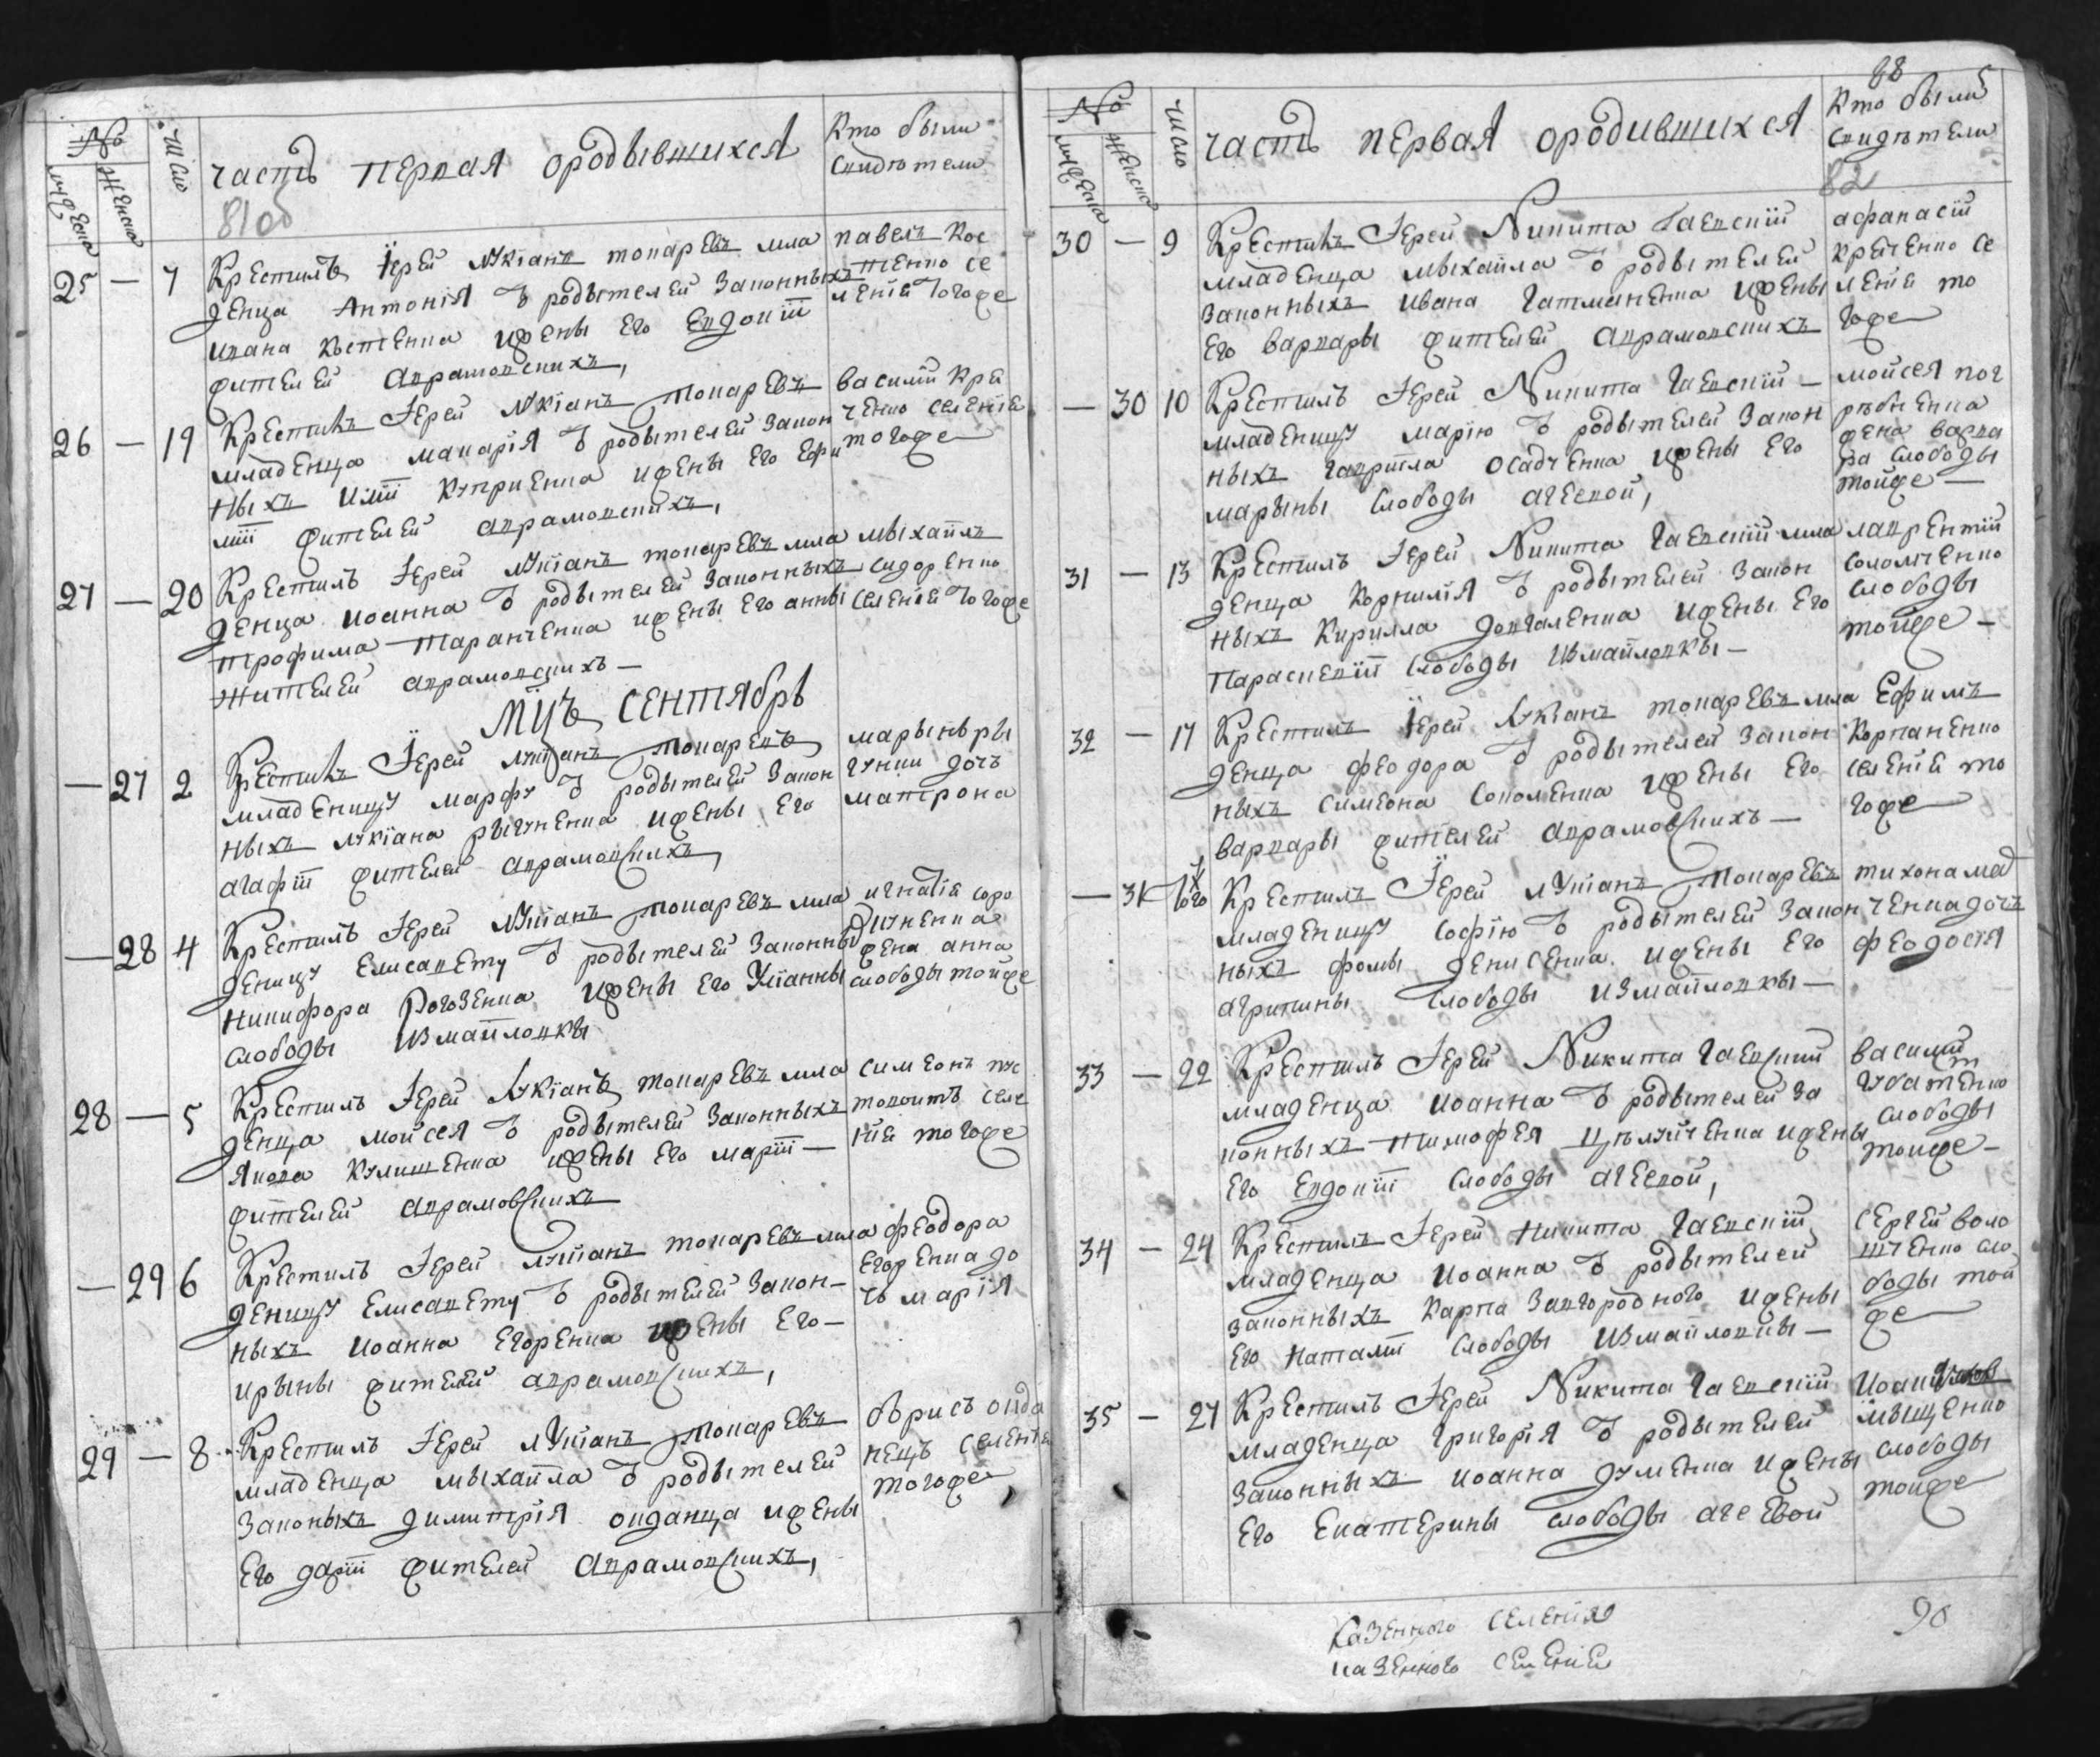 №
мужеска
женска
число
часть первая ородывшихся
81об
Кто были
свидѣтели
25 — 7
Крестилъ Іерей Лукіанъ токаревъ мла
денца Антонія ѿ родытелей Законныхъ
Ивана Костенка ижены Его Евдокіи
жителей Аврамовскихъ,
павелъ Кос
тенко се
ленія тогоже
26 — 19
Крестилъ Іерей Лукіанъ токаревъ
младенца макарія ѿ родытелей закон
ныхъ Иліи Куприенка ижены Его Ефи
міи жителей аврамовскихъ,
василій Кра
ченко селенія
тогоже
27 — 20
Крестилъ Іерей Лукіанъ токаревъ мла
денца иоанна ѿ родытелей законныхъ
трофима Таранченка ижены Его анны
жителей аврамовскихъ —
мыхайлъ
сидоренко
селенія тогоже
мцъ сентябрь
— 27 2
Крестилъ Іерей лукіанъ токаревъ
младеницу марфу ѿ родытелей Закон
ныхъ лукіана рыгуненка ижены Его
агафіи жителей аврамовскихъ,
марыны ры
гунки дочъ
матрона
— 28 4
Крестилъ Іерей Лукіанъ токаревъ мла
деницу Елисавету ѿ родытелей Законны
Никифора Рогозенка ижены Его Уліанны
слободы Измайловкы
игнатія соро
жена анна
слободы тойже
28 — 5
Крестилъ Іерей Лукіанъ токаревъ мла
денца мойсея ѿ родытелей Законныхъ
Якова Кулишенка ижены Его маріи —
жителей аврамовскихъ
симеонъ пус
товоитъ селе
нія тогоже
— 29 6
Крестилъ Іерей лукіанъ токаревъ мла
деницу Елисавету ѿ родытелей Закон—
ныхъ Иоанна Егоренка ижены Его—
ирыны жителей аврамовскихъ,
феодора
Егоренка до
чь марія
29 — 8
Крестилъ Іерей Лукіанъ токаревъ
младенца мыхайла ѿ родытелей
Законыхъ димитрія онданца ижены
Его даріи жителей Аврамовскихъ,
борисъ онда
нецъ селенія
тогоже
№
мужеска
женска
число
часть первая ородившихся
88
Кто были
свидѣтели
82
30 — 9
Крестилъ Іерей Никита Гаевскій
младенца мыхайла ѿ родытелей
Законныхъ ивана Гатманенка ижены
Его варвары жителей аврамовскихъ
афанасій
Крайченко се
ленія то
гоже
— 30 10
Крестилъ Іерей Никита Гаевскій —
младеницу марію ѿ родытелей Закон
ныхъ гаврійла осадченка ижены Его
марыны слободы агеевой,
мойсея пог
рѣбненка
жена варва
ра слободы
тойже —
31 — 13
Крестилъ Іерей Никита Гаевскій мла
денца Корнилія ѿ родытелей Закон
ныхъ Кирилла довгаленка ижены Его
Параскевіи слободы Измайловкы —
лаврентій
соломченко
слободы
тойже —
32 — 17
Крестилъ Іерей Лукіанъ токаревъ мла
денца феодора ѿ родытелей Закон
ныхъ симеона соколенка ижены Его
варвары жителей аврамовскихъ —
Ефимъ
Корпаненко
селенія то
гоже
— 31 того
Крестилъ Іерей лукіанъ токаревъ
младеницу софію ѿ родытелей Закон
ныхъ фомы денисенка ижены Его
агрипины слободы измайловкы —
тихона мат
ченка дочъ
феодосія
33 — 22
Крестилъ Іерей Никита Гаевскій
младенца иоанна ѿ родытелей За
конныхъ тимофея Цѣлуйченка ижены
Его Евдокіи слободы агеевой,
василій
слободы
тойже —
34 — 24
Крестилъ Іерей Никита Гаевскій
младенца иоанна ѿ родытелей
законныхъ Карпа Завгородного ижены
Его Наталіи слободы Измайловкы —
сергей воло
щенко сло
боды той
же
35 — 27
Крестилъ Іерей Никита Гаевскій
младенца григорія ѿ родытелей
Законныхъ иоанна думенка ижены
Его Екатерины слободы агеевой
мыщенко
слободы
тойже
Казенного селенія
казенного селения
90